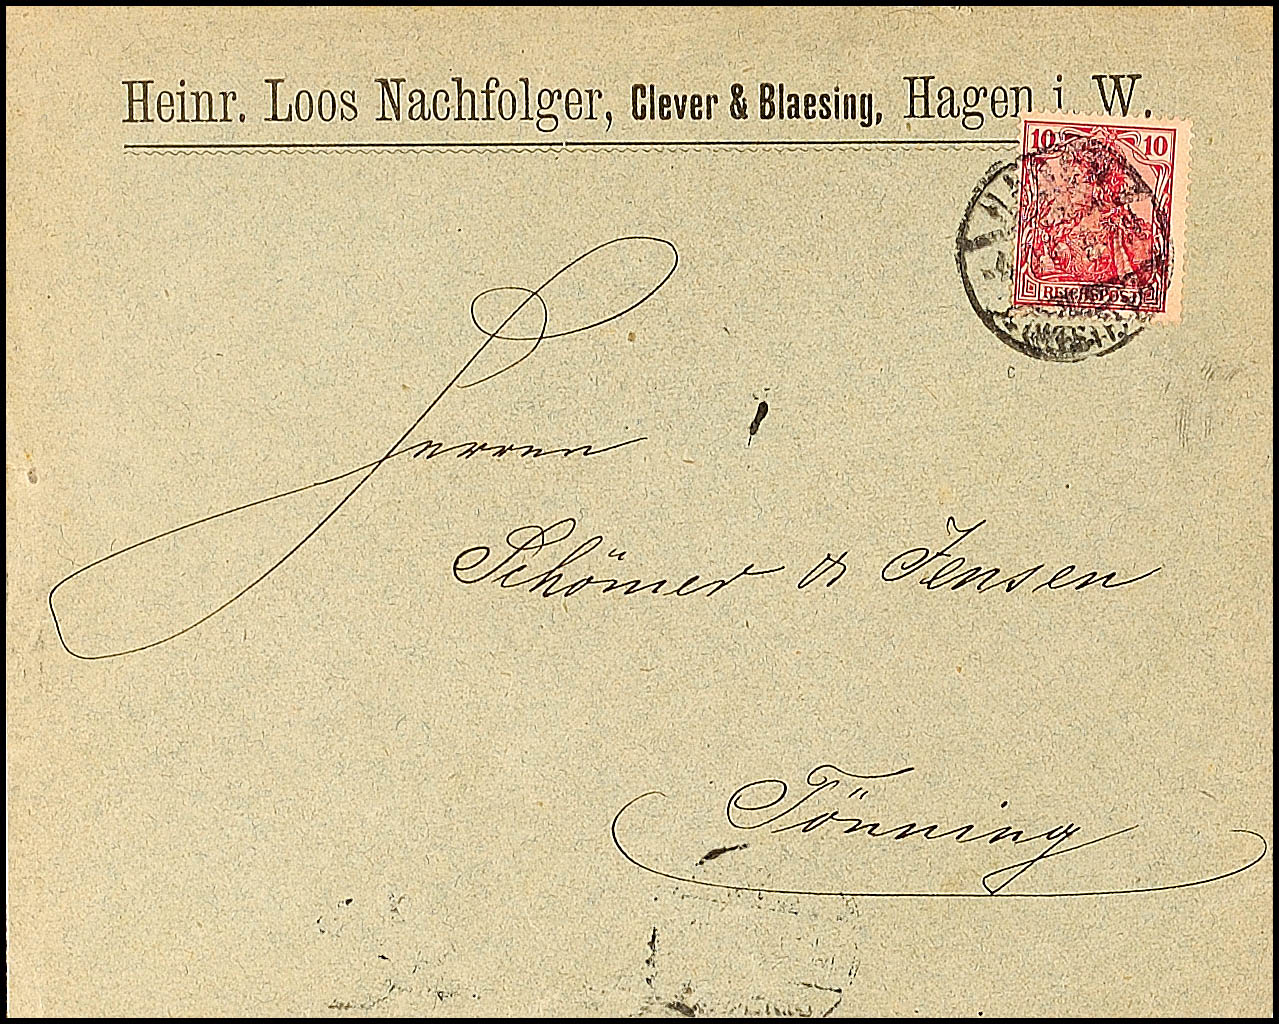 Heinr. Loos Nachfolger, Clever & Blaesing, Hagen i. W.
10 10
REICHSPOST
Herren
Schömer & Jensen
Tönning